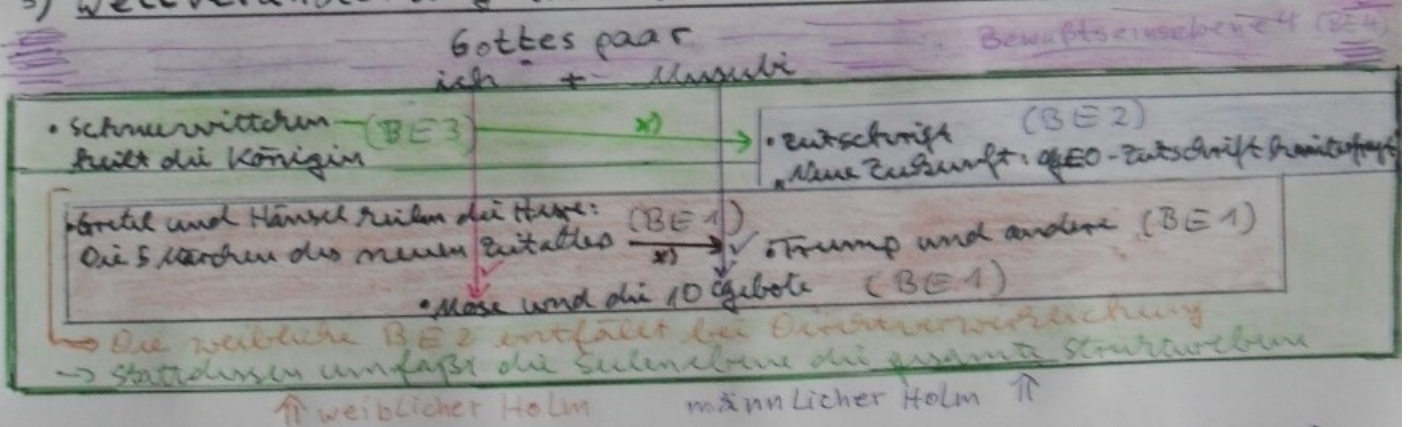 3)
Gottes paar
Bewußtseinsebene 4 (BE4)
ich +
• Schneewittchen (BE3)
heilt die Königin
x)
(BE2)
• Zeitschrift
Neue Zukunft:
• Gretel und Hänsel heilen die Hexe:
Die 5 Märchen des neuen Zeitalters
(BE1)
x)
• Trump und andere (BE1)
• Mose und die 10 Gebote (BE1)
→ Die weibliche BE2 entfällt bei Direktverwirklichung
→ Stattdessen umfaßt die Seelenebene die gesamte Strukturebene
⇑ weiblicher Holm
männlicher Holm ⇑